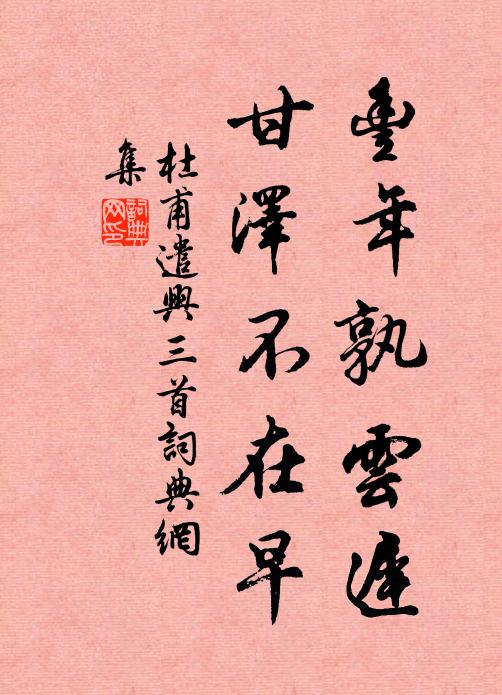 豐年孰雲遲
甘澤不在早
杜甫遣興三首詞典網
集
詞典網印